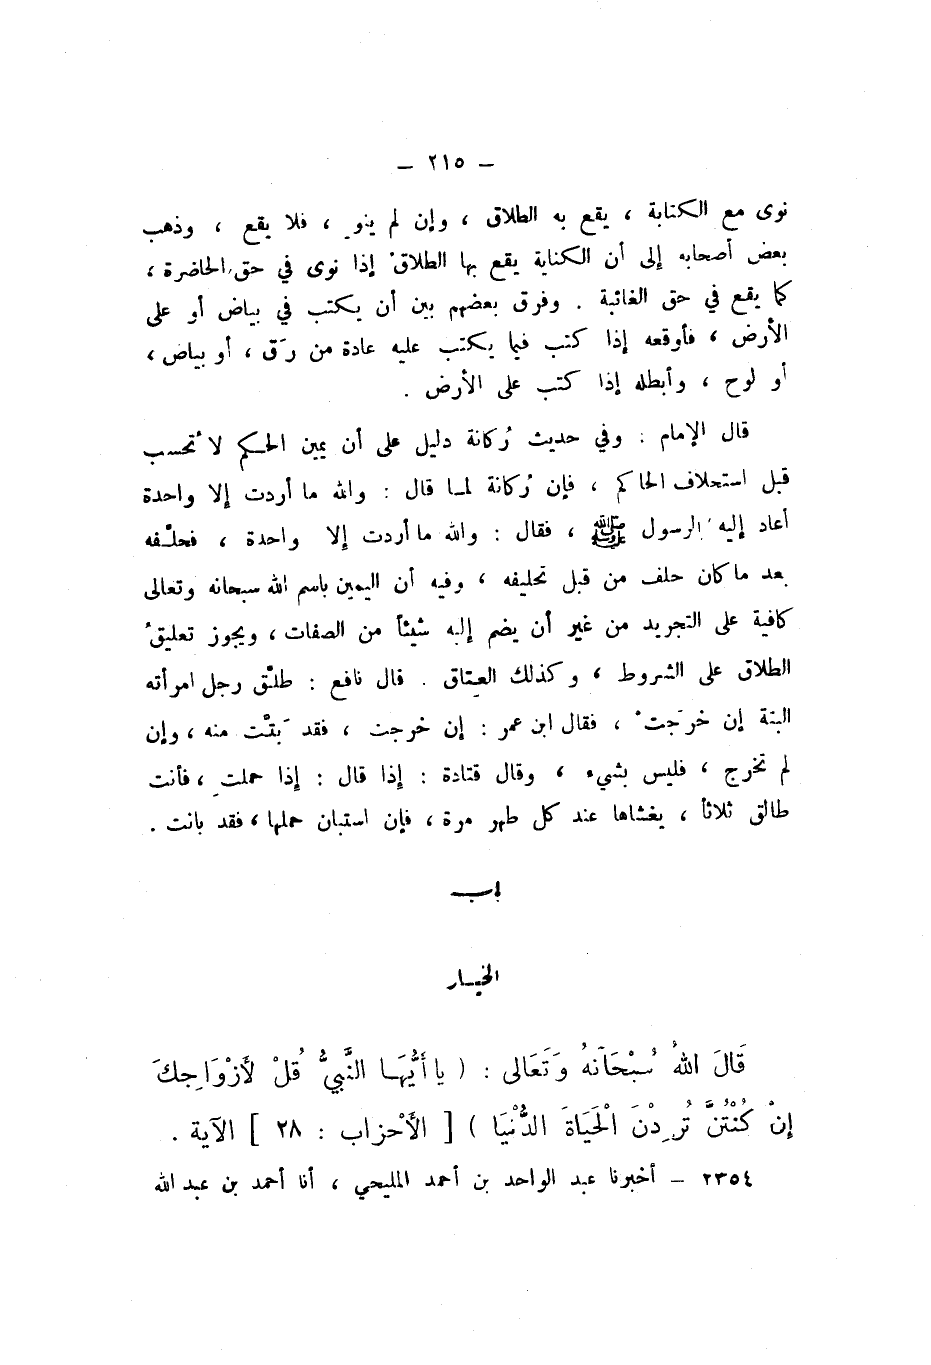 – ٢١٥ –
نوى مع الكتابة ، يقع به الطلاق ، وإن لم ينوِ ، فلا يقع ، وذهب
بعض أصحابه إلى أن الكتابة يقع بها الطلاقُ إذا نوى في حق الحاضرة ،
كما يقع في حق الغائبة . وفرق بعضهم بين أن يكتب في بياض أو على
الأرض ، فأوقعه إذا كتب فيما يكتب عليه عادة من رَق ، أو بياض ،
أو لوح ، وأبطله إذا كتب على الأرض .
قال الإمام : وفي حديث رُكانة دليل على أن يمين الحكم لا تُحسب
قبل استحلاف الحاكم ، فإن رُكانة لمـا قال : والله ما أردت إلا واحدة
أعاد إليه الرسول ﷺ ، فقال : والله ما أردت إلا واحدة ، فحلَّـفه
بعد ما كان حلف من قبل تحليفه ، وفيه أن اليمين باسم الله سبحانه وتعالى
كافية على التجريد من غير أن يضم إليه شيئاً من الصفات ، ويجوز تعليقُ
الطلاق على الشروط ، وكذلك العتاق . قال نافع : طلَّق رجل امرأته
البتة إن خرَجتْ ، فقال ابن عمر : إن خرجت ، فقد بَتَّت منه ، وإن
لم تخرج ، فليس بشيء ، وقال قتادة : إذا قال : إذا حملتِ ، فأنت
طالق ثلاثاً ، يغشاها عند كل طهر مرة ، فإن استبان حملها ، فقد بانت .
باب
الخيـار
قَالَ اللهُ سُبْحَانَهُ وَتَعَالى : ( يا أَيُّهَـا النَّبِيُّ قُلْ لأَزْوَاجِكَ
إِنْ كُنْتُنَّ تُرِدْنَ الْحَيَاةَ الدُّنْيَا ) [ الأَحْزاب : ٢٨ ] الآية .
٢٣٥٤ – أخبرنا عبد الواحد بن أحمد المليحي ، أنا أحمد بن عبد الله